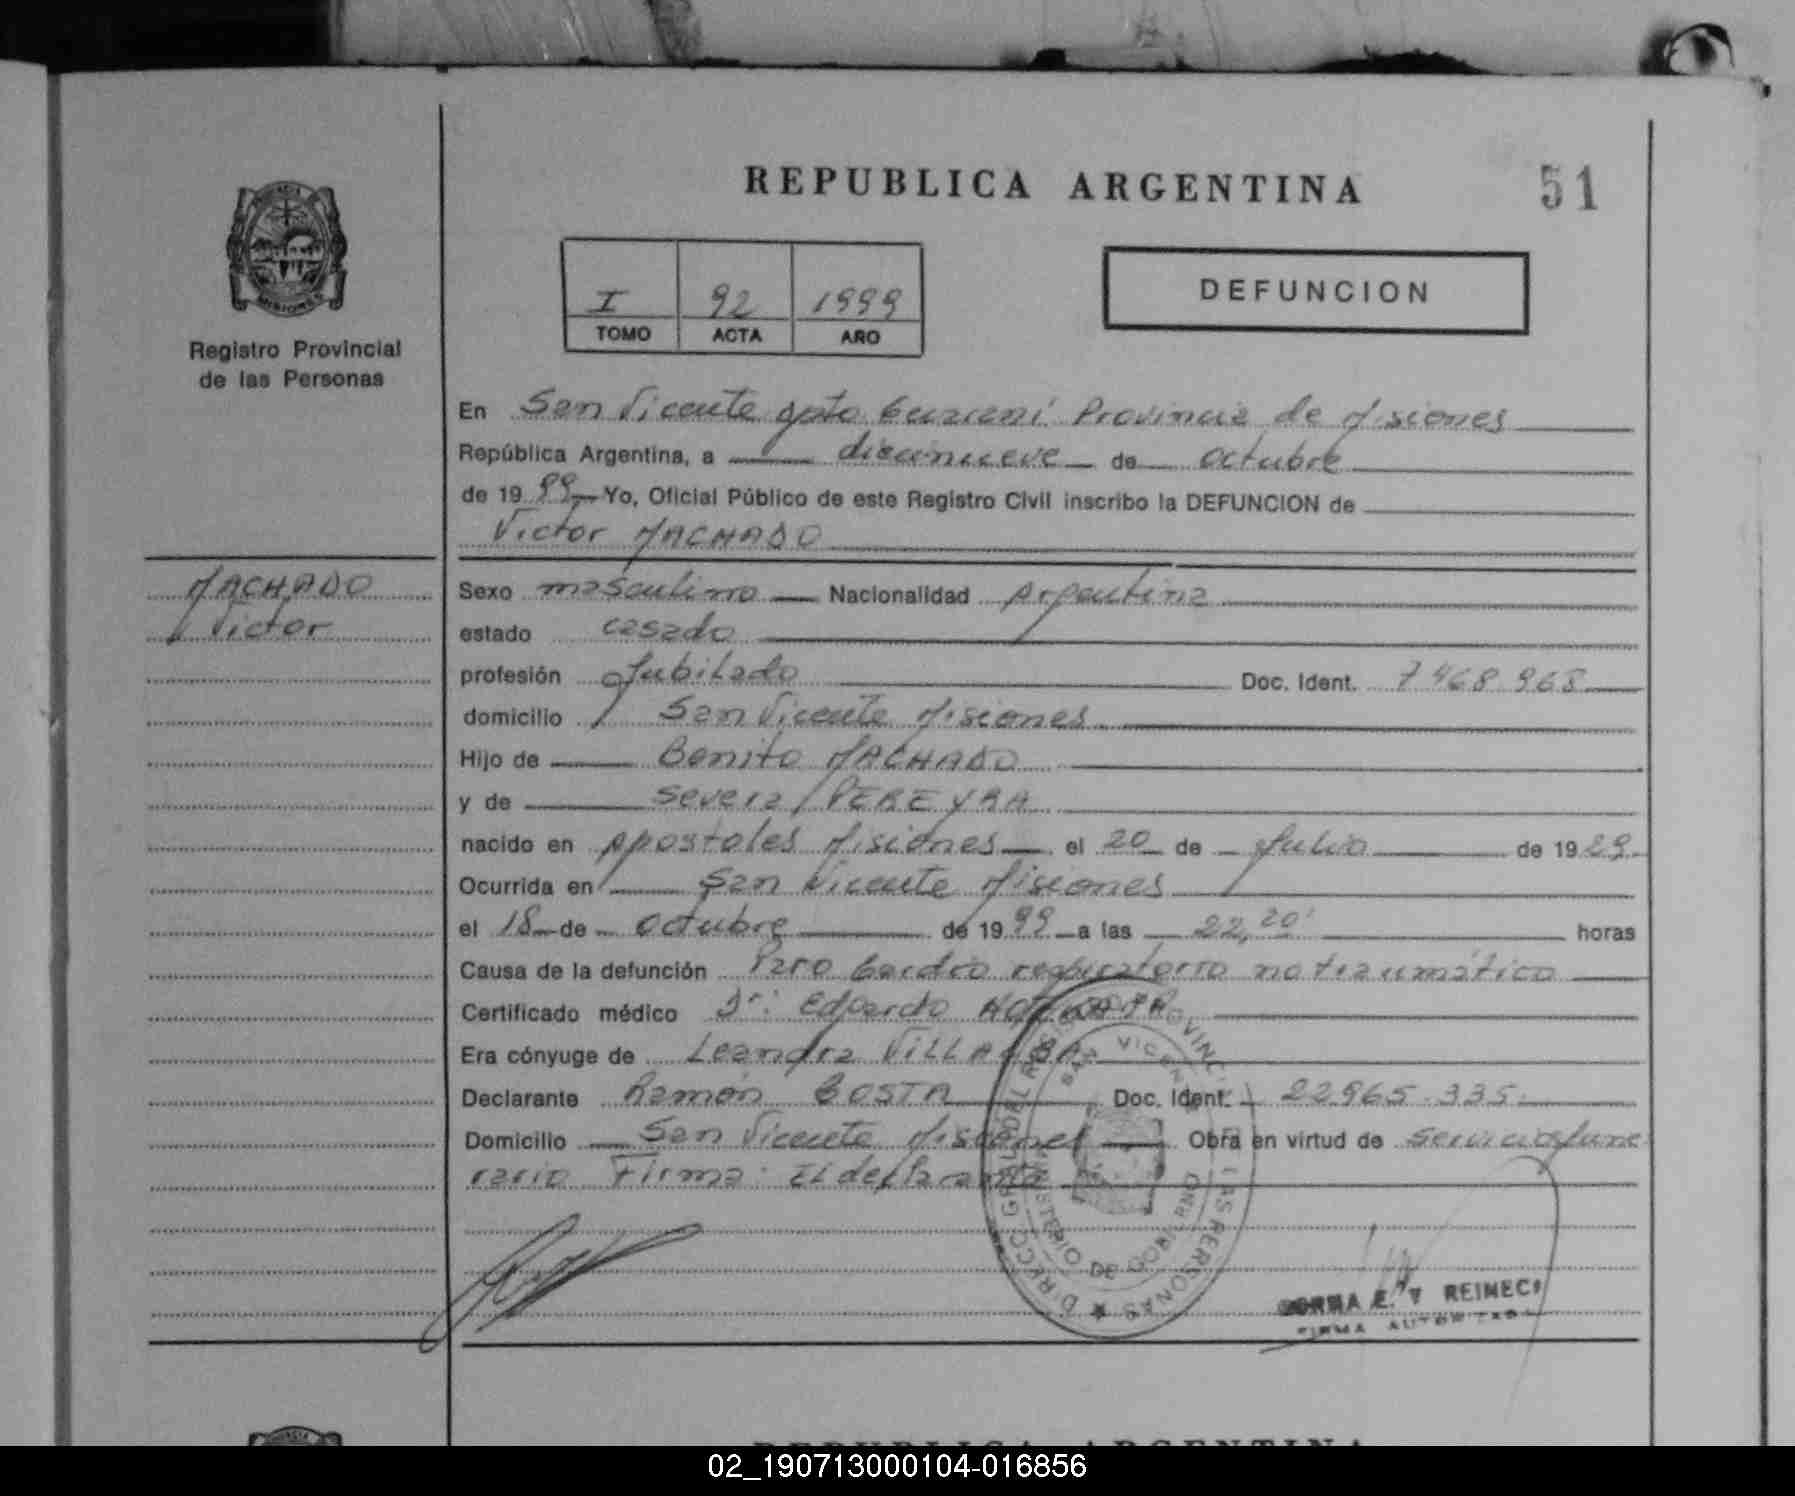 REPUBLICA ARGENTINA
51
I 92 1999
TOMO ACTA AÑO
DEFUNCION
Registro Provincial
de las Personas
En San Vicente dpto Guarani Provincia de Misiones
República Argentina, a diecinueve de octubre
de 1999 Yo, Oficial Público de este Registro Civil inscribo la DEFUNCION de
Victor MACHADO
MACHADO
Victor
Sexo masculino Nacionalidad Argentina
estado casado
profesión Jubilado Doc. Ident. 7468968
domicilio San Vicente Misiones
Hijo de Benito MACHADO
y de Severa PEREYRA
nacido en Apostoles Misiones el 20 de Julio de 1929
Ocurrida en San Vicente Misiones
el 18 de octubre de 1999 a las 22,20' horas
Causa de la defunción Paro Cardio respiratorio no traumático
Certificado médico Dr: Eduardo
Era cónyuge de Leandra VILLALBA
Declarante Ramón COSTA Doc. Ident. 22965.335.
Domicilio San Vicente Misiones Obra en virtud de servicios fune
rario Firma: El declarante
SAN VICENTE
MINISTERIO DE GOBIERNO
LAS PERSONAS
E. V REINECK
FIRMA AUTORIZADA
REPUBLICA ARGENTINA
02_190713000104-016856